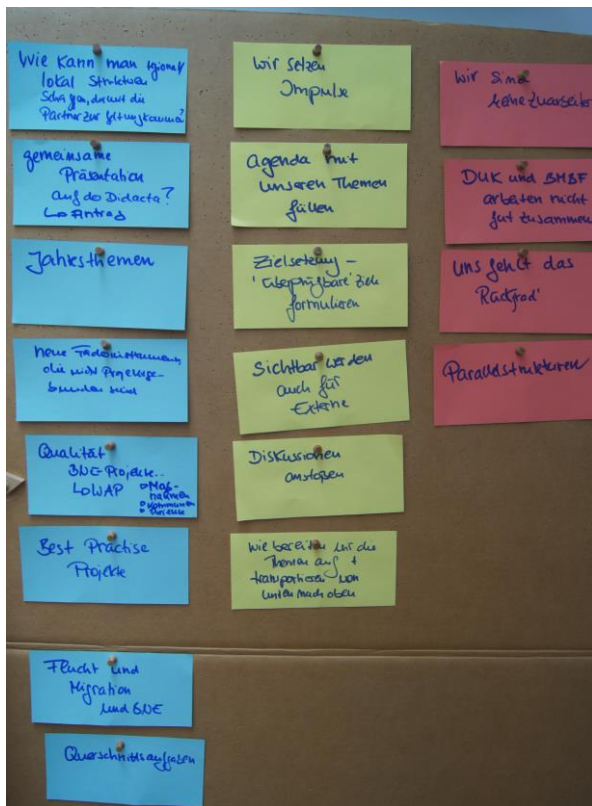 Wie kann man regional/
lokal Strukturen
schaffen, damit die
Partner zur Geltung kommen?
gemeinsame
Präsentation
auf der Didacta?
↳ Antrag
Jahresthemen
neue Förderinstrumente,
die nicht Projektge-
bunden sind
Qualität
BNE-Projekte..
LOWAP
Maß-
nahmen
Kommunen
Projekte
Best Practise
Projekte
Flucht und
Migration
und BNE
Querschnittsaufgaben
Wir setzen
Impulse
Agenda mit
unseren Themen
füllen
Zielsetzung –
'überprüfbare' Ziele
formulieren
Sichtbar werden
auch für
Externe
Diskussionen
anstoßen
Wie bereiten wir die
Themen auf +
transportieren von
unten nach oben
Wir sind
keine Zuarbeiter
DUK und BMBF
arbeiten nicht
gut zusammen
Uns fehlt das
'Rückgrad'
Parallelstrukturen